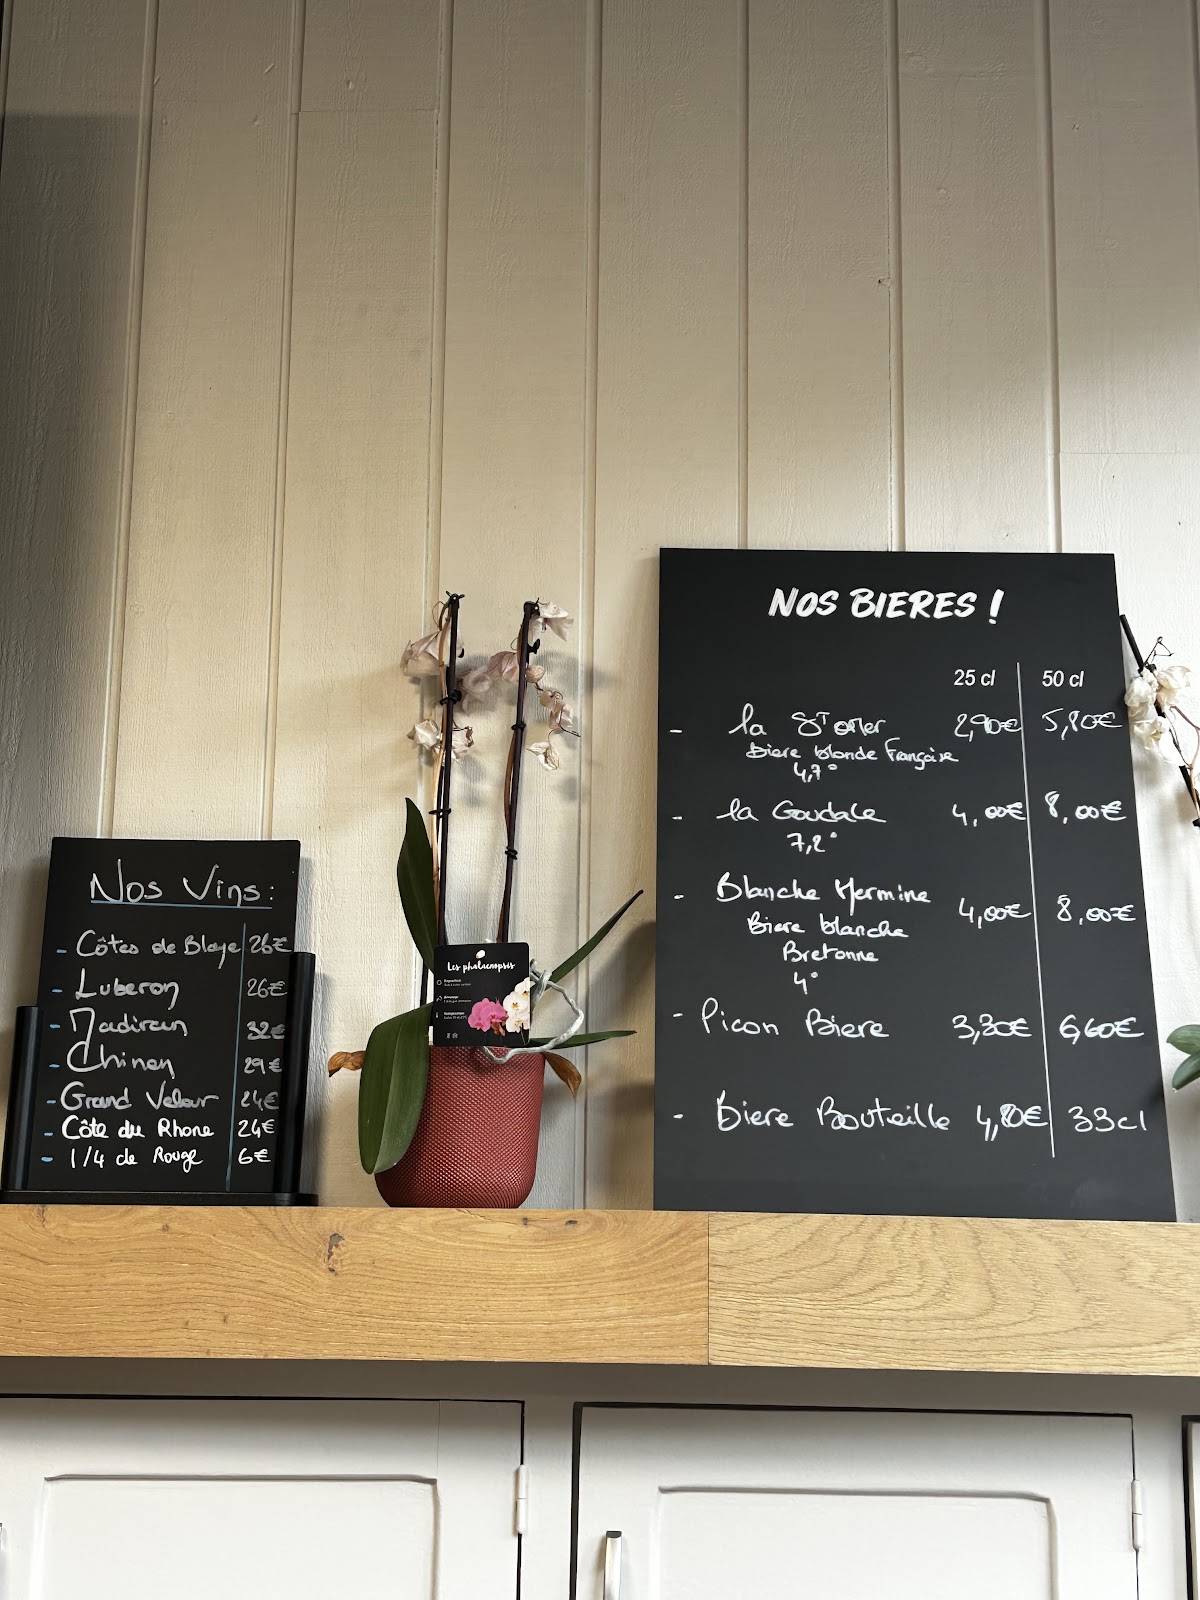 Nos Vins :
- Côtes de Blaye 26€
- Luberon 26€
- Madiran 32€
- Chinon 29€
- Grand Velour 24€
- Côte du Rhone 24€
- 1/4 de Rouge 6€
Les phalaenopsis
NOS BIERES !
25 cl 50 cl
- la St omer 2,90€ 5,80€
Biere blonde Française
4,7°
- la Goudale 4,00€ 8,00€
7,2°
- Blanche Hermine 4,00€ 8,00€
Biere blanche
Bretonne
4°
- Picon Biere 3,30€ 6,60€
- Biere Bouteille 4,80€ 33cl